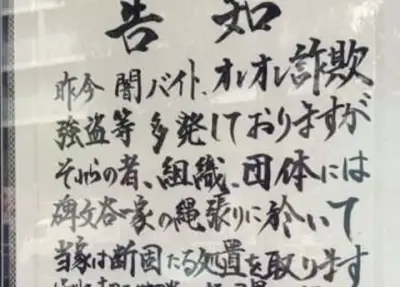 告知
昨今 闇バイト、オレオレ詐欺
強盗等 多発しておりますが
それらの者、組織、団体には
碑文谷一家の縄張りに於いて
当家は断固たる処置を取ります